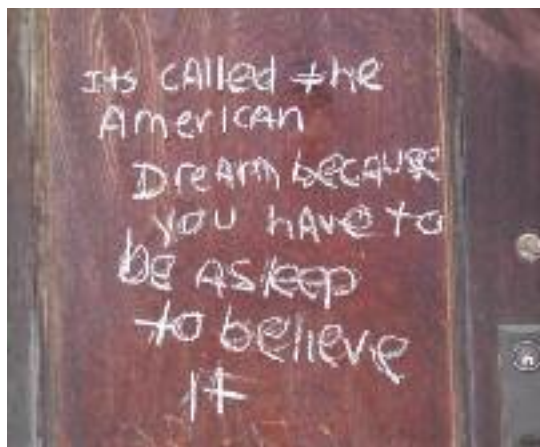 Its cAlled the
AmericAn
DreAm becAuse
you hAve to
be Asleep
to believe
it